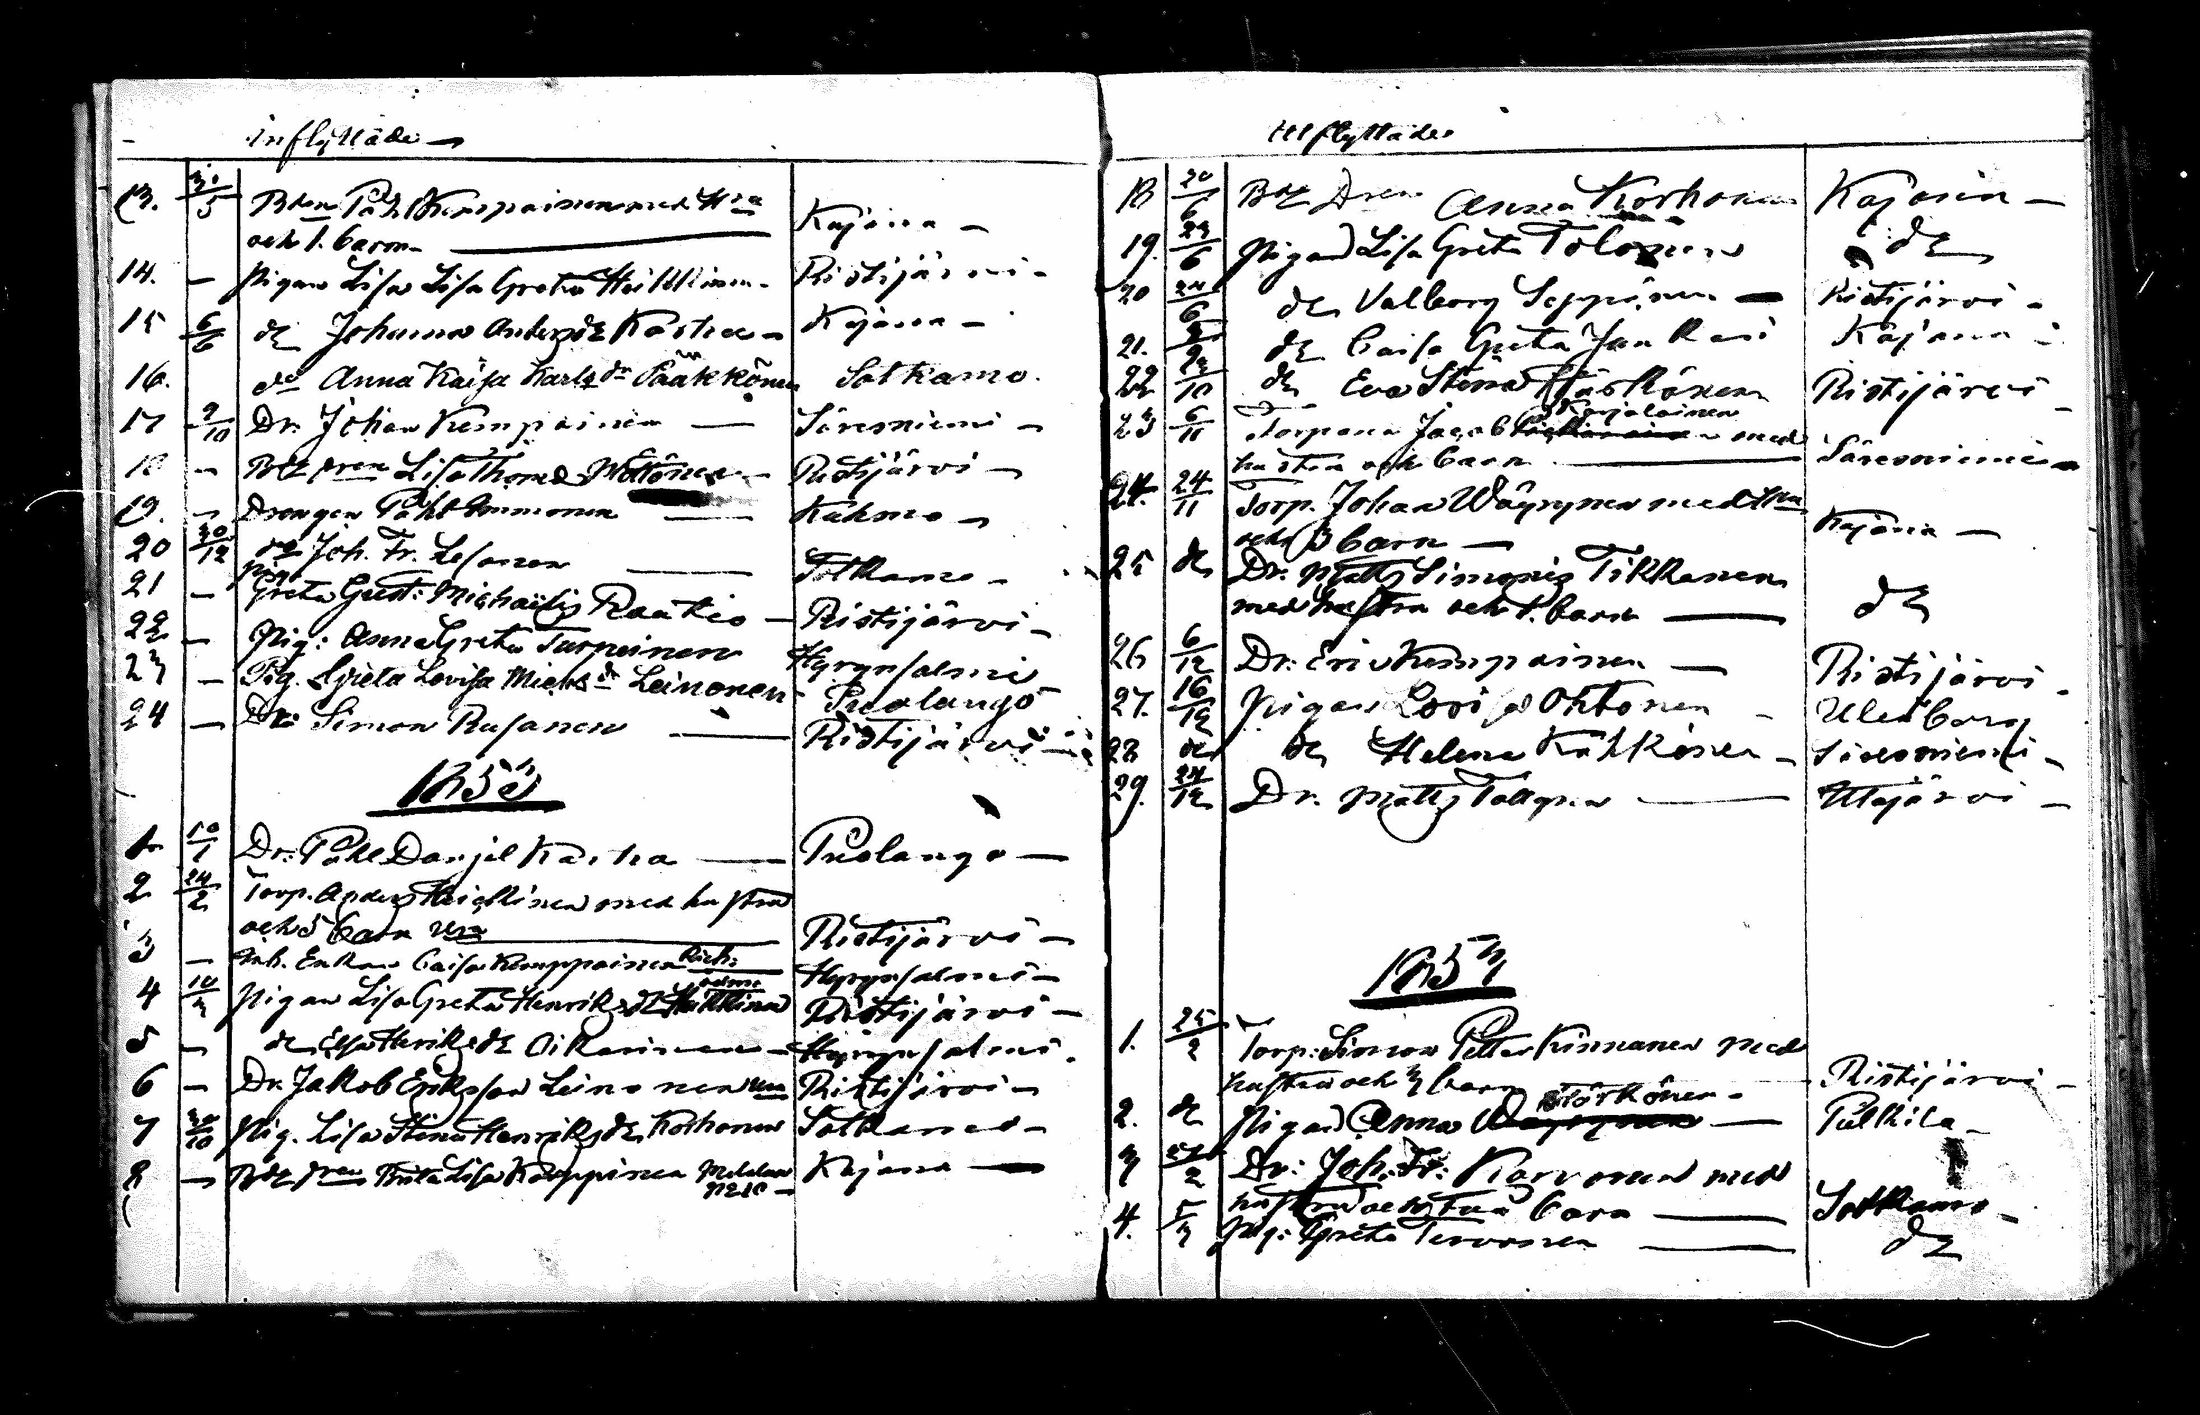 Inflyttade
13. 31/5 Bdn Påhl Kemppainen med Hru
och 1. barn Kajana
14. — Pigan Lisa Lisa Greta Heikkinen Ristijärvi
15 6/6 de Johanna Andersdr Karhu Kajana
16. do Anna Kaisa Karlsdr Pääkkönen Sotkamo.
17 9/10 Dr. Johan Kemppainen Säresniemi
18 — Bde dren Lisa Thomasdr Ristijärvi
19. — Drengen Påhl Immonen Kuhmo
20 30/12 de Joh. Fr. Lesonen Sotkamo
21 — pig. Greta Gust. Michaelis Raatio Ristijärvi
22 — Pig: Anna Greta Turpeinen Hyrynsalmi
23 — Pig. Greta Lovisa Mickls dr Leinonen Puolango
24 — Dr: Simon Rusanen Ristijärvi
1853
1. 10/1 Dr: Påhl Danjel Karhu Puolango
2 24/2 Torp. Anders Heikkinen med hustru
och 5 barn Ristijärvi
3 — Inh. Enkan Caisa Kemppainen Hyrynsalmi
4 10/3 Pigan Lisa Greta Henriksdr Heikkinen Ristijärvi
5 — de Elsa Henriksdr Oikarinen Hyrynsalmi
6 — Dr. Jakob Eriksson Leinonen Ristijärvi
7 30/10 Pig. Lisa Stina Henriksdr Korhonen Sotkamo
8 — Bde dren Brita Lisa Karppinen Kajana
Utflyttade
18 20/6 Bde Dren Anna Korhonen Kajana
19. 22/6 Pigan Lisa Greta Tolonen de
20 24/6 de Valborg Seppänen Ristijärvi
21. de Caisa Greta Juntari Kajana
22 9/10 de Eva Stina Härkönen Ristijärvi
23 6/11 Torparen Jacob Karjalainen med
hustru och barn Säresniemi
24. 24/11 Torp. Johan Wäyrynen med Hru
och 3 barn Kajana
25 de Dr. Matts Simonis Tikkanen
med hustru och 1. barn de
26 6/12 Dr. Eric Kemppainen Ristijärvi
27. 16/12 Pigan Lovisa Ohtonen Uleåborg
28 de de Helena Kähkönen Säresniemi
29. 24/12 Dr. Matts Tollgren Utajärvi
1853
1. 25/2 Torp: Simon Petter Kinnunen med
hustru och 3 barn Ristijärvi
2. de Pigan Anna Härkönen Pulkila
3 27/2 Dr: Joh: Fr: Karvonen med
hustru och två barn Sotkamo
4. 5/3 Pig: Greta Tervonen de